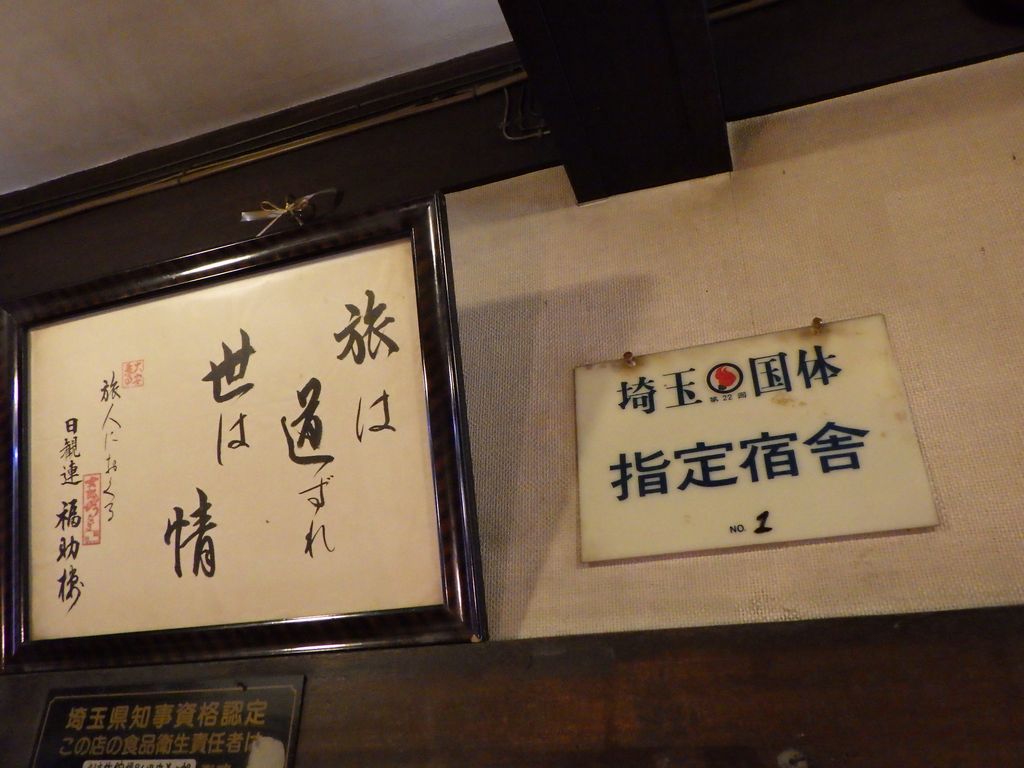 旅は
道ずれ
世は
情
旅人におくる
日観連 福助楼
埼玉 国体
第22回
指定宿舎
NO. 1
埼玉県知事資格認定
この店の食品衛生責任者は